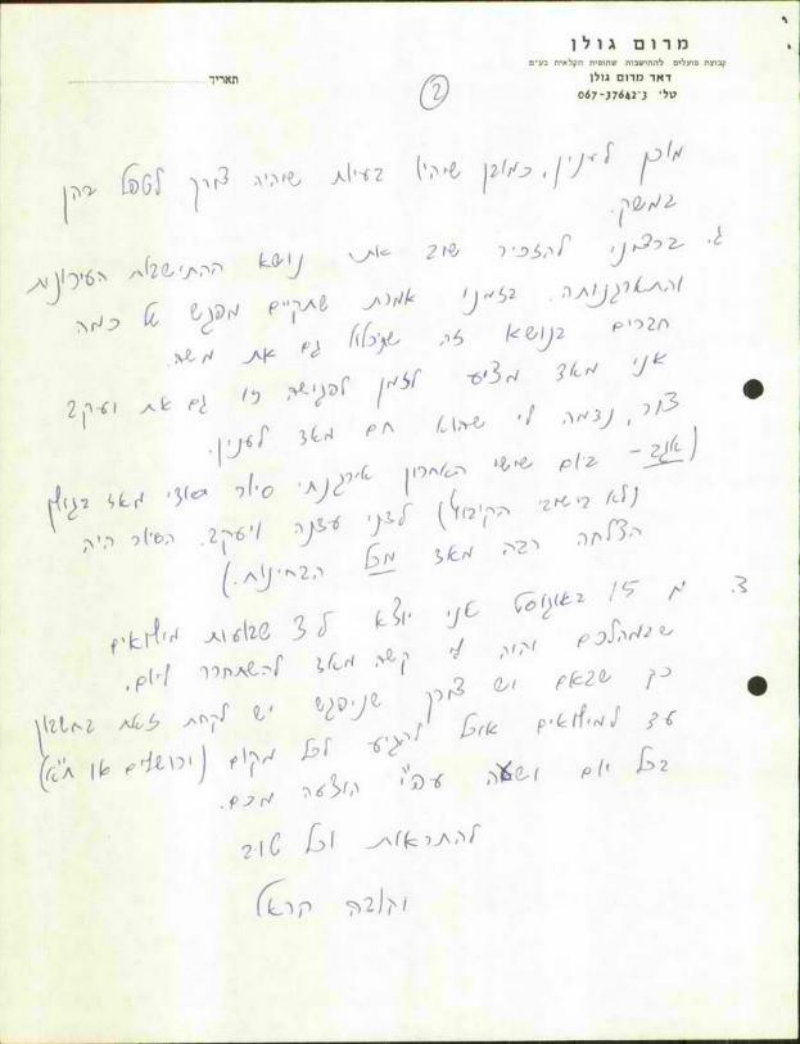 מרום גולן
קבוצת פועלים להתישבות שתופית חקלאית בע״מ
דאר מרום גולן
טל׳ 3־067-37642
תאריך
2
מוכן לענין, כמובן שיהיו בעיות שיהיה צורך לטפל בהן
במשק.
ג. ברצוני להזכיר שוב את נושא ההתישבות העירונית
והתארגנותה. בזמנו אמרת שתקיים מפגש של כמה
חברים בנושא זה שיכלול גם את משה.
אני מאד מציע לזמן לפגישה זו גם את יעקב
צור, נדמה לי שהוא חם מאד לענין.
(אגב - ביום שישי האחרון אירגנתי סיור יסודי מאד בגולן
(ולא בישובי הקיבוץ) לבני ויעקב. הסיור היה
הצלחה רבה מאד מכל הבחינות.)
ד. מ 15 באוגוסט אני יוצא ל 3 שבועות מילואים
שבמהלכם יהיה לי קשה מאד להשתחרר ליום.
כך שבאם יש צורך שניפגש יש לקחת זאת בחשבון
עד למילואים אוכל להגיע לכל מקום (ירושלים או ת״א)
בכל יום ושעה עפ״י הודעה מכם.
להתראות וכל טוב
יקובה הראל